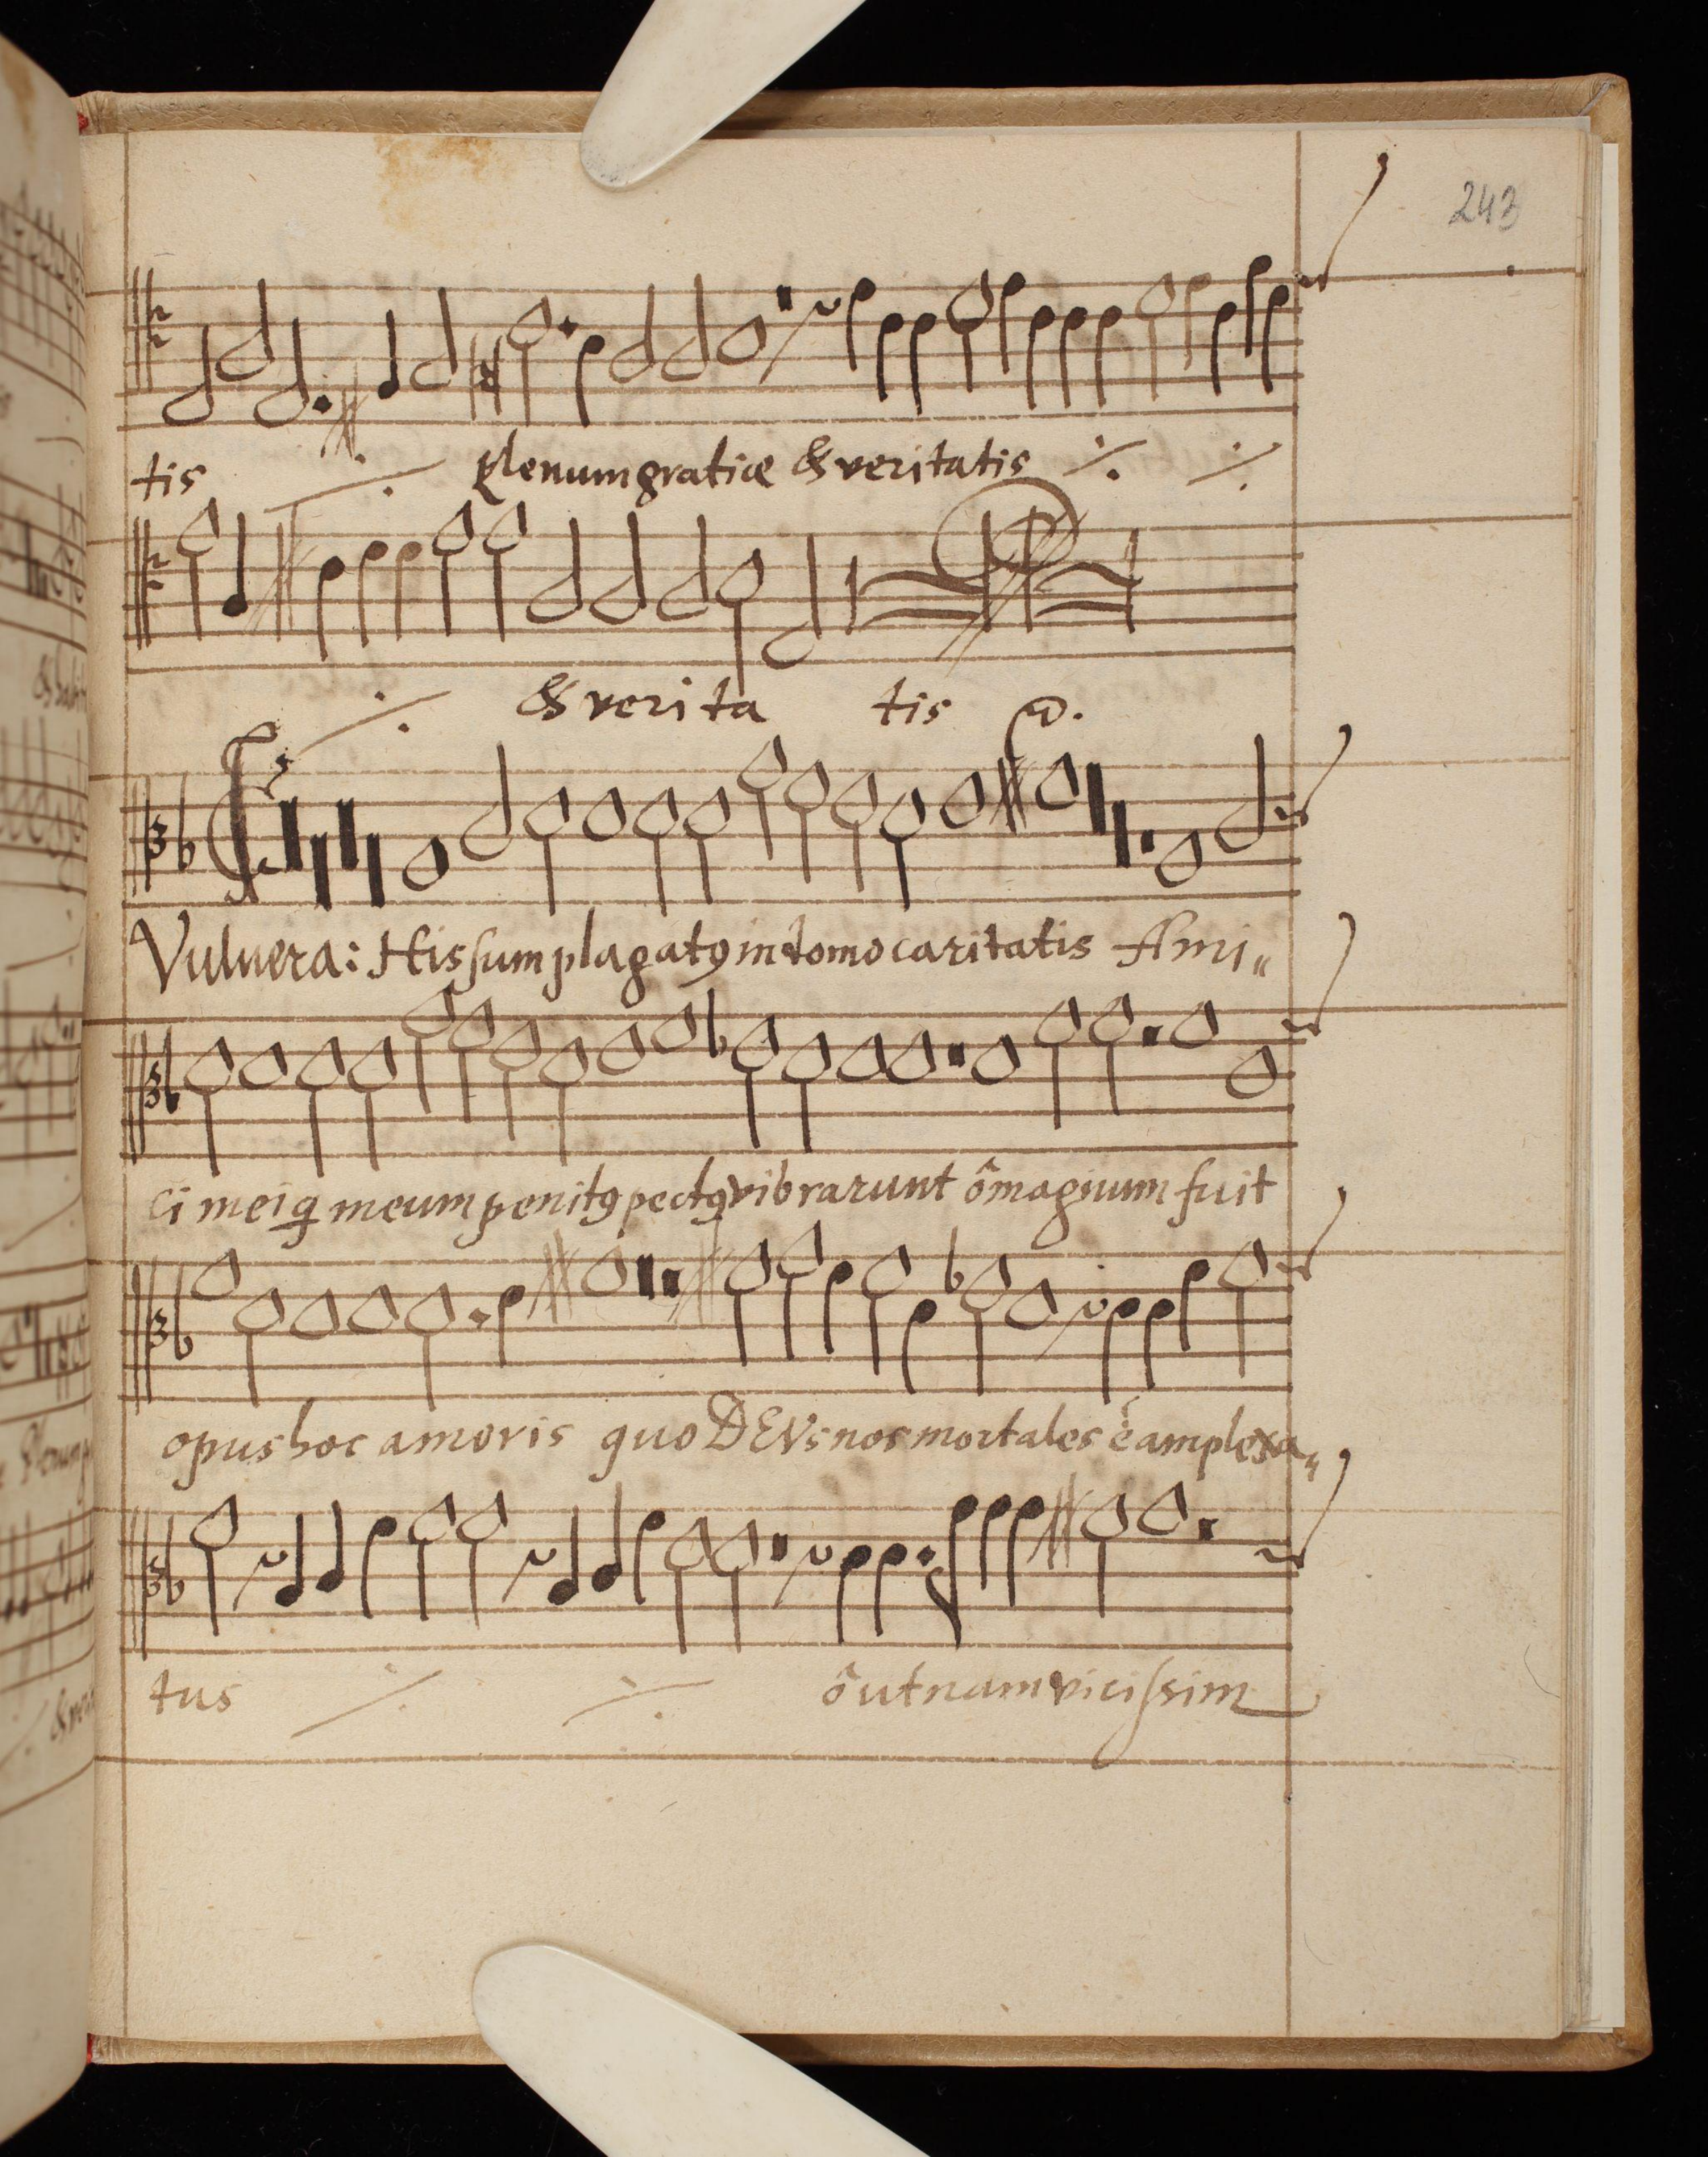 243
tis plenum gratiæ & veritatis
& verita tis
Vulnera: His sum plagatꝰ in domo caritatis Ami„
ci mei q meum penitꝰ pectꝰ vibrarunt ô magnum fuit
opus hoc amoris quo DEVs nos mortales è amplexa„
tus ô utnam vicissim